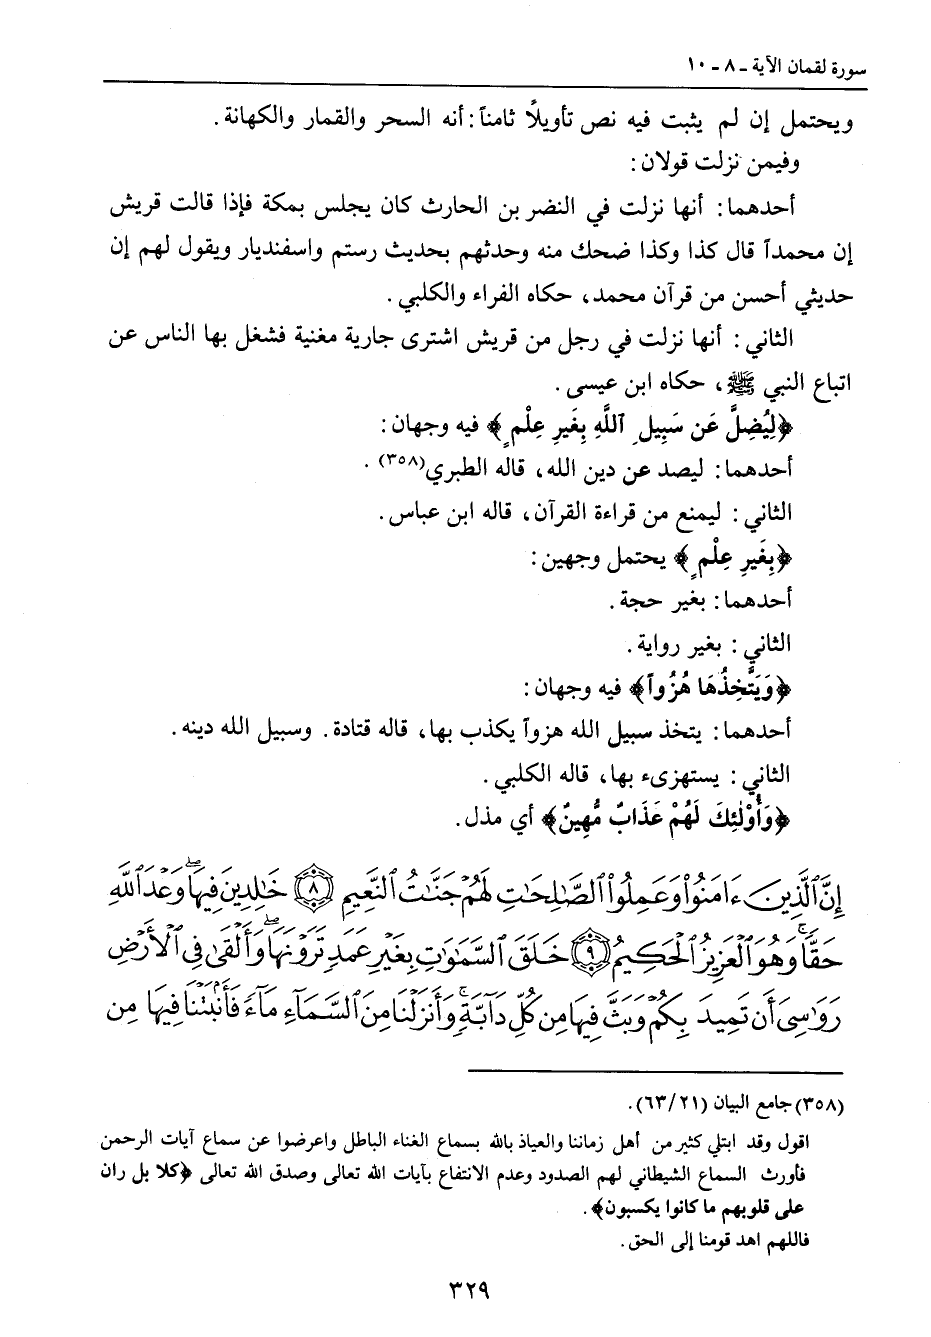 سورة لقمان الآية ـ ٨ ـ ١٠
ويحتمل إن لم يثبت فيه نص تأويلاً ثامناً: أنه السحر والقمار والكهانة.
وفيمن نزلت قولان:
أحدهما: أنها نزلت في النضر بن الحارث كان يجلس بمكة فإذا قالت قريش
إن محمداً قال كذا وكذا ضحك منه وحدثهم بحديث رستم واسفنديار ويقول لهم إن
حديثي أحسن من قرآن محمد، حكاه الفراء والكلبي.
الثاني: أنها نزلت في رجل من قريش اشترى جارية مغنية فشغل بها الناس عن
اتباع النبي ﷺ، حكاه ابن عيسى.
﴿لِيُضِلَّ عَن سَبِيلِ ٱللَّهِ بِغَيرِ عِلْمٍ﴾ فيه وجهان:
أحدهما: ليصد عن دين الله، قاله الطبري(٣٥٨).
الثاني: ليمنع من قراءة القرآن، قاله ابن عباس.
﴿بِغَيرِ عِلْمٍ﴾ يحتمل وجهين:
أحدهما: بغير حجة.
الثاني: بغير رواية.
﴿وَيَتَّخِذُهَا هُزُواً﴾ فيه وجهان:
أحدهما: يتخذ سبيل الله هزواً يكذب بها، قاله قتادة. وسبيل الله دينه.
الثاني: يستهزىء بها، قاله الكلبي.
﴿وَأُوْلٰئِكَ لَهُمْ عَذَابٌ مُّهِينٌ﴾ أي مذل.
إِنَّ ٱلَّذِينَ ءَامَنُوا۟ وَعَمِلُوا۟ ٱلصَّـٰلِحَـٰتِ لَهُمْ جَنَّـٰتُ ٱلنَّعِيمِ ٨ خَـٰلِدِينَ فِيهَا ۖ وَعْدَ ٱللَّهِ
حَقًّا ۚ وَهُوَ ٱلْعَزِيزُ ٱلْحَكِيمُ ٩ خَلَقَ ٱلسَّمَـٰوَٰتِ بِغَيْرِ عَمَدٍ تَرَوْنَهَا ۖ وَأَلْقَىٰ فِى ٱلْأَرْضِ
رَوَٰسِىَ أَن تَمِيدَ بِكُمْ وَبَثَّ فِيهَا مِن كُلِّ دَآبَّةٍ ۚ وَأَنزَلْنَا مِنَ ٱلسَّمَآءِ مَآءً فَأَنۢبَتْنَا فِيهَا مِن
(٣٥٨) جامع البيان (٦٣/٢١).
اقول وقد ابتلي كثير من أهل زماننا والعياذ بالله بسماع الغناء الباطل واعرضوا عن سماع آيات الرحمن
فأورث السماع الشيطاني لهم الصدود وعدم الانتفاع بآيات الله تعالى وصدق الله تعالى ﴿كلا بل ران
على قلوبهم ما كانوا يكسبون﴾.
فاللهم اهد قومنا إلى الحق.
٣٢٩